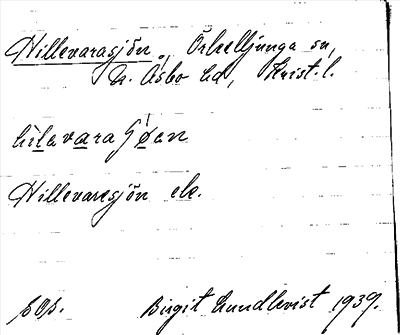 Hillevarasjön, Örkelljunga sn,
N. Åsbo hd, Krist. l.
hìlavaraʃǿan
Hillevaresjön ek.
søs.
Birgit Lundkvist 1939.